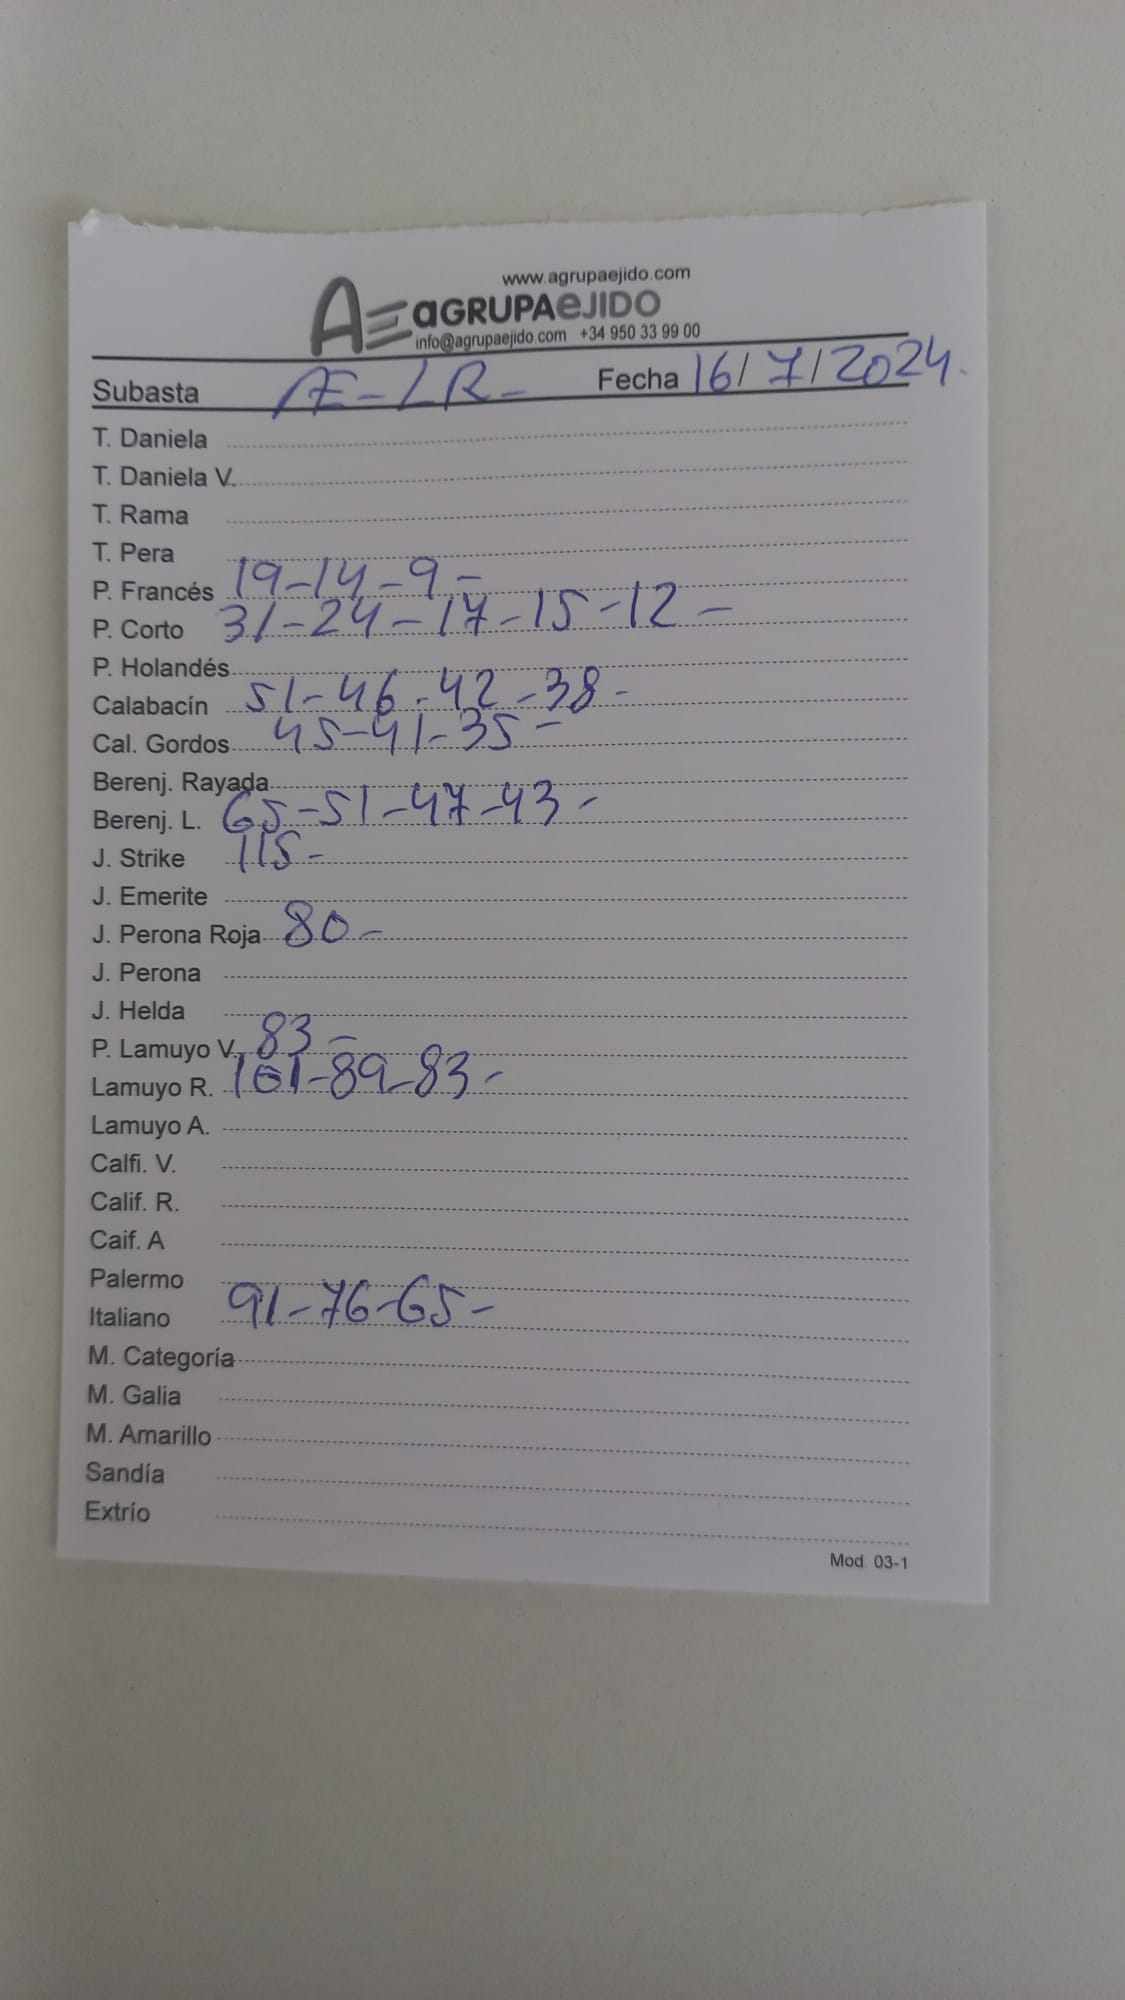 www.agrupaejido.com
AE aGRUPAeJIDO
info@agrupaejido.com +34 950 33 99 00
Subasta AE - LR - Fecha 16/7/2024.
T. Daniela
T. Daniela V.
T. Rama
T. Pera
P. Francés 19-14-9-
P. Corto 31-24-17-15-12-
P. Holandés
Calabacín 51-46-42-38-
Cal. Gordos 45-41-35-
Berenj. Rayada
Berenj. L. 65-51-47-43-
J. Strike 115-
J. Emerite
J. Perona Roja 80-
J. Perona
J. Helda
P. Lamuyo V. 83-
Lamuyo R. 101-89-83-
Lamuyo A.
Calfi. V.
Calif. R.
Caif. A
Palermo
Italiano 91-76-65-
M. Categoría
M. Galia
M. Amarillo
Sandía
Extrío
Mod 03-1